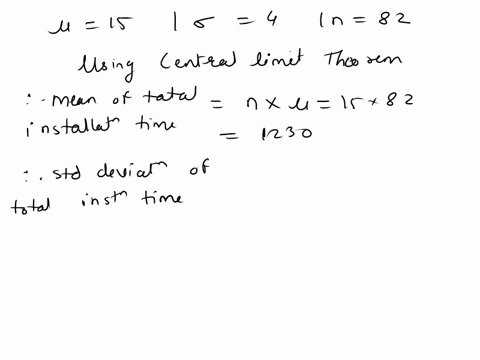 μ = 15 | σ = 4 | n = 82
Using Central limit Theorem
∴ mean of total = n × μ = 15 × 82
installatn time = 1230
∴ std deviatn of
total instn time